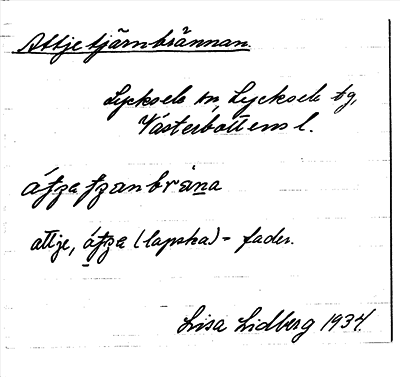 Attjetjärnbrännan.
Lycksele sn, Lycksele tg,
Västerbottens l.
attje, (lapska) = fader.
Lisa Lidberg 1934.